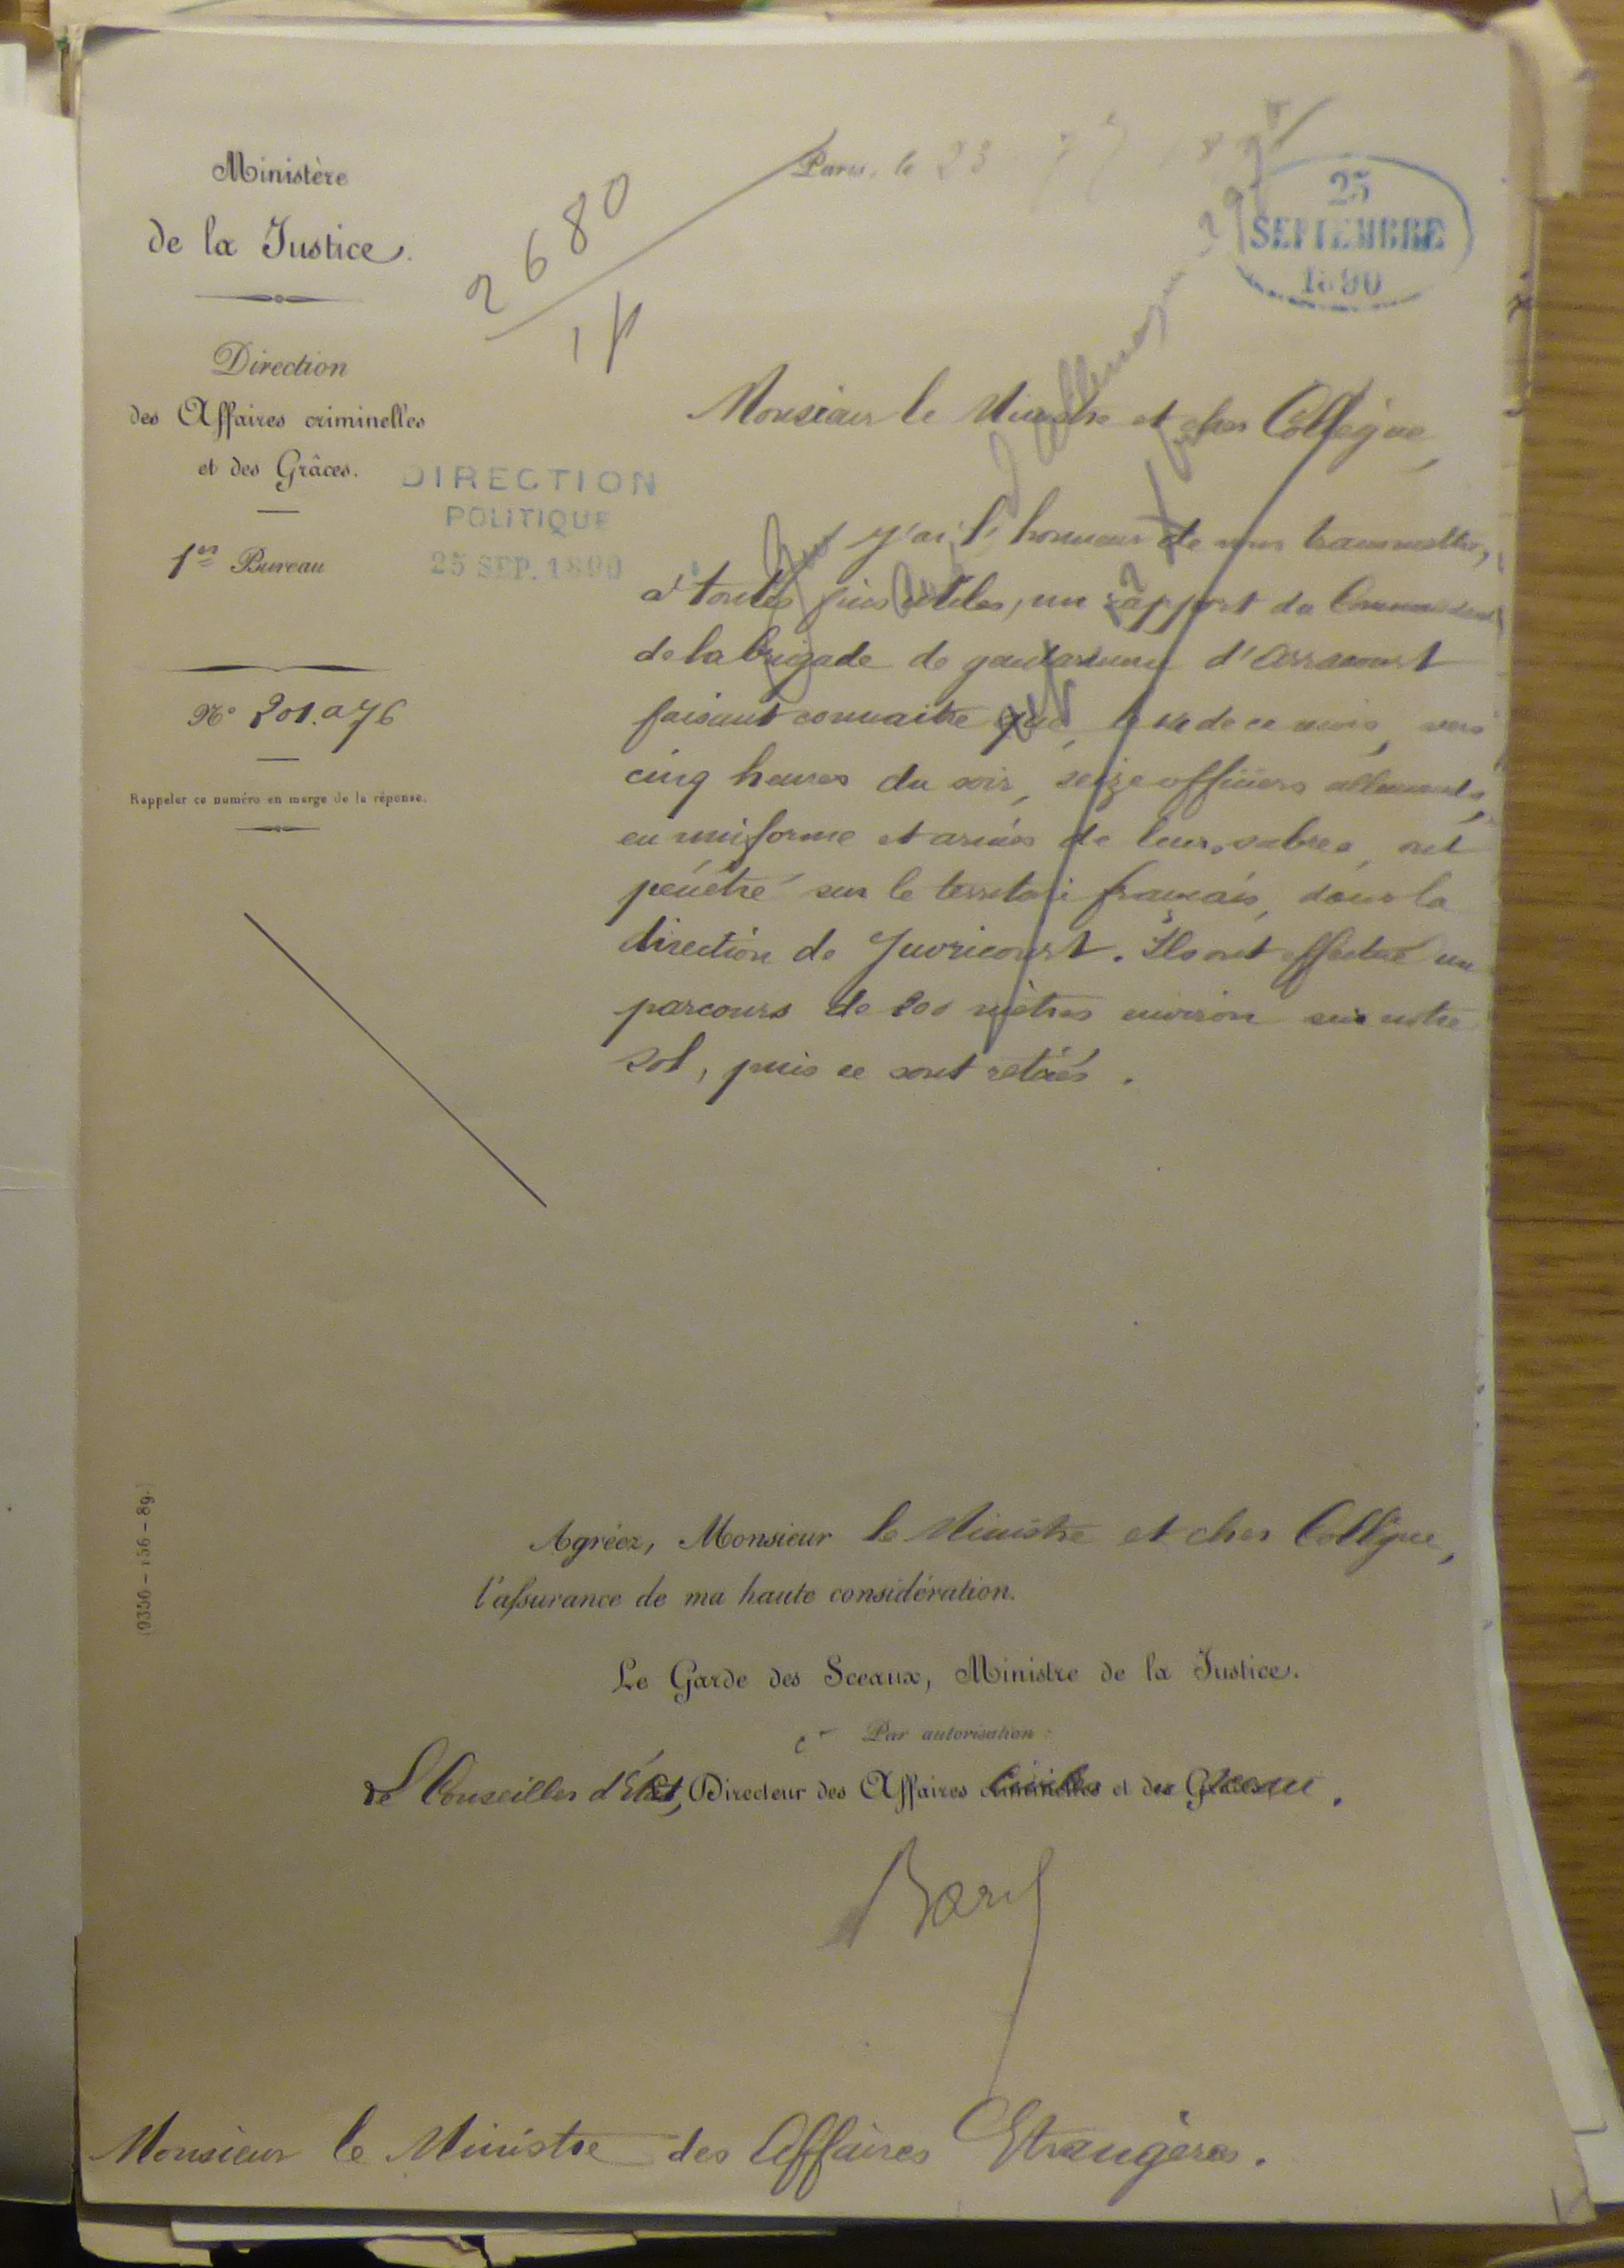 Ministère
de la Justice.
Direction
des Affaires criminelles
et des Grâces.
1er Bureau
N° 201.a76
Rappeler ce numéro en marge de la réponse.
2680
Paris, le 23
25
SEPTEMBRE
1890
DIRECTION
POLITIQUE
25 SEP. 1890
Monsieur le Ministre et cher Collègue,
J'ai l'honneur de vous transmettre,
à toutes fins utiles, un rapport du Commandant
de la brigade de gendarmerie d'Arracourt
faisant connaître que, le de ce mois, vers
cinq heures du soir, seize officiers allemands,
en uniforme et armés de leurs sabres, ont
pénétré sur le territoire français, dans la
direction de Juvricourt. Ils ont effectué un
parcours de 200 mètres environ sur notre
sol, puis se sont retirés.
(9356-156-89.)
Agréez, Monsieur le Ministre et cher Collègue,
l'assurance de ma haute considération.
Le Garde des Sceaux, Ministre de la Justice.
Par autorisation :
Le Conseiller d'État, Directeur des Affaires civiles et du Sceau.
Monsieur le Ministre des Affaires Etrangères.